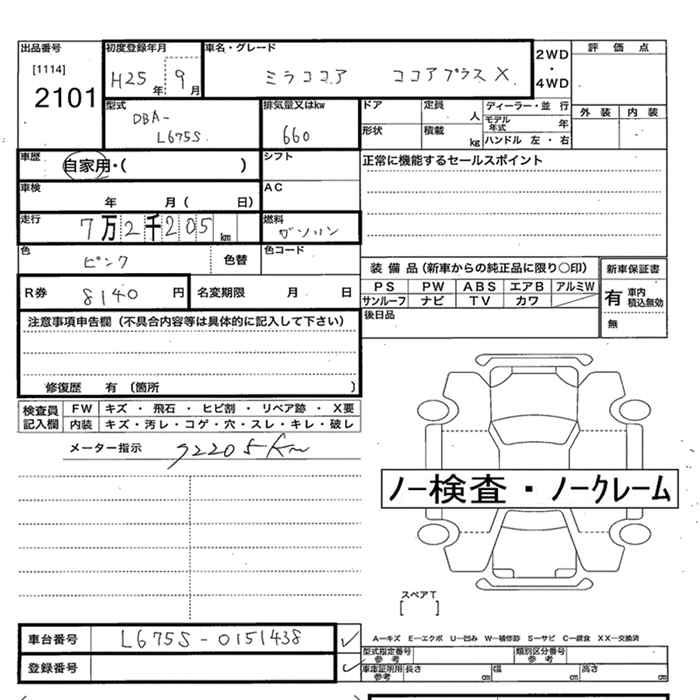 出品番号
[1114]
2101
初度登録年月
H25 年 9 月
車名・グレード
ミラココア ココアプラスX
2WD
・
4WD
評 価 点
外 装 内 装
型式
DBA-
L675S
排気量又はkw
660
ドア
定員
人
形状
積載
kg
ディーラー・並 行
モデル
年式 年
ハンドル 左 ・ 右
車歴
自家用・( )
シフト
正常に機能するセールスポイント
車検
年 月( 日)
AC
走行
7万2千205km
燃料
ガソリン
色
ピンク
色替
色コード
装 備 品(新車からの純正品に限り○印)
PS PW ABS エアB アルミW
サンルーフ ナビ TV カワ
新車保証書
有 車内
積込無効
無
R券 8140 円
名変期限 月 日
後日品
注意事項申告欄(不具合内容等は具体的に記入して下さい)
修復歴 有(箇所 )
検査員
記入欄
FW キズ ・ 飛石 ・ ヒビ割 ・ リペア跡 ・ X要
内装 キズ・汚レ・コゲ・穴・スレ・キレ・破レ
メーター指示 72205Km
ノー検査・ノークレーム
スペアT
[ ]
車台番号 L675S-0151438
登録番号
A―キズ E―エクボ U―凹み W―補修跡 S―サビ C―腐食 XX―交換済
型式指定番号
参 考
類別区分番号
参 考
車庫証明用
参考
長さ cm 幅 cm 高さ cm